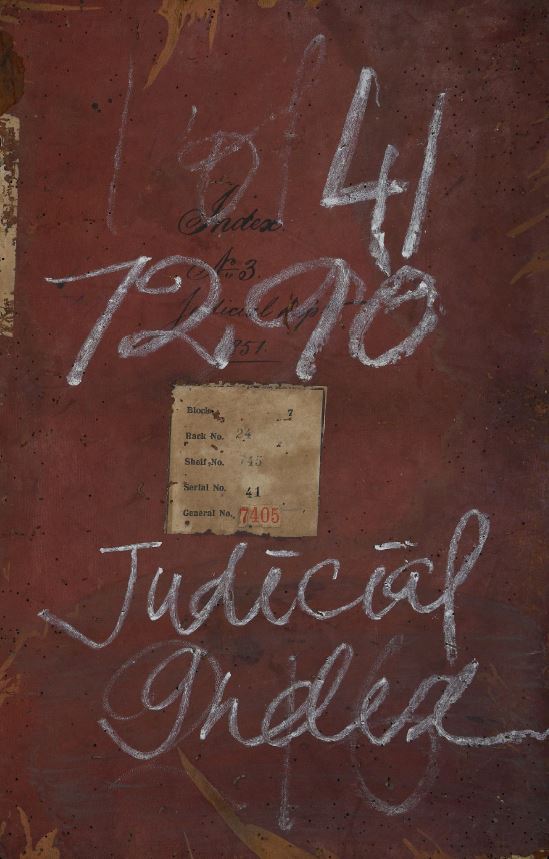 41
Index
No. 3
Judicial Dept
1851
7290
Block 7
Rack No. 24
Shelf No. 745
Serial No. 41
General No. 7405
Judicial
Index